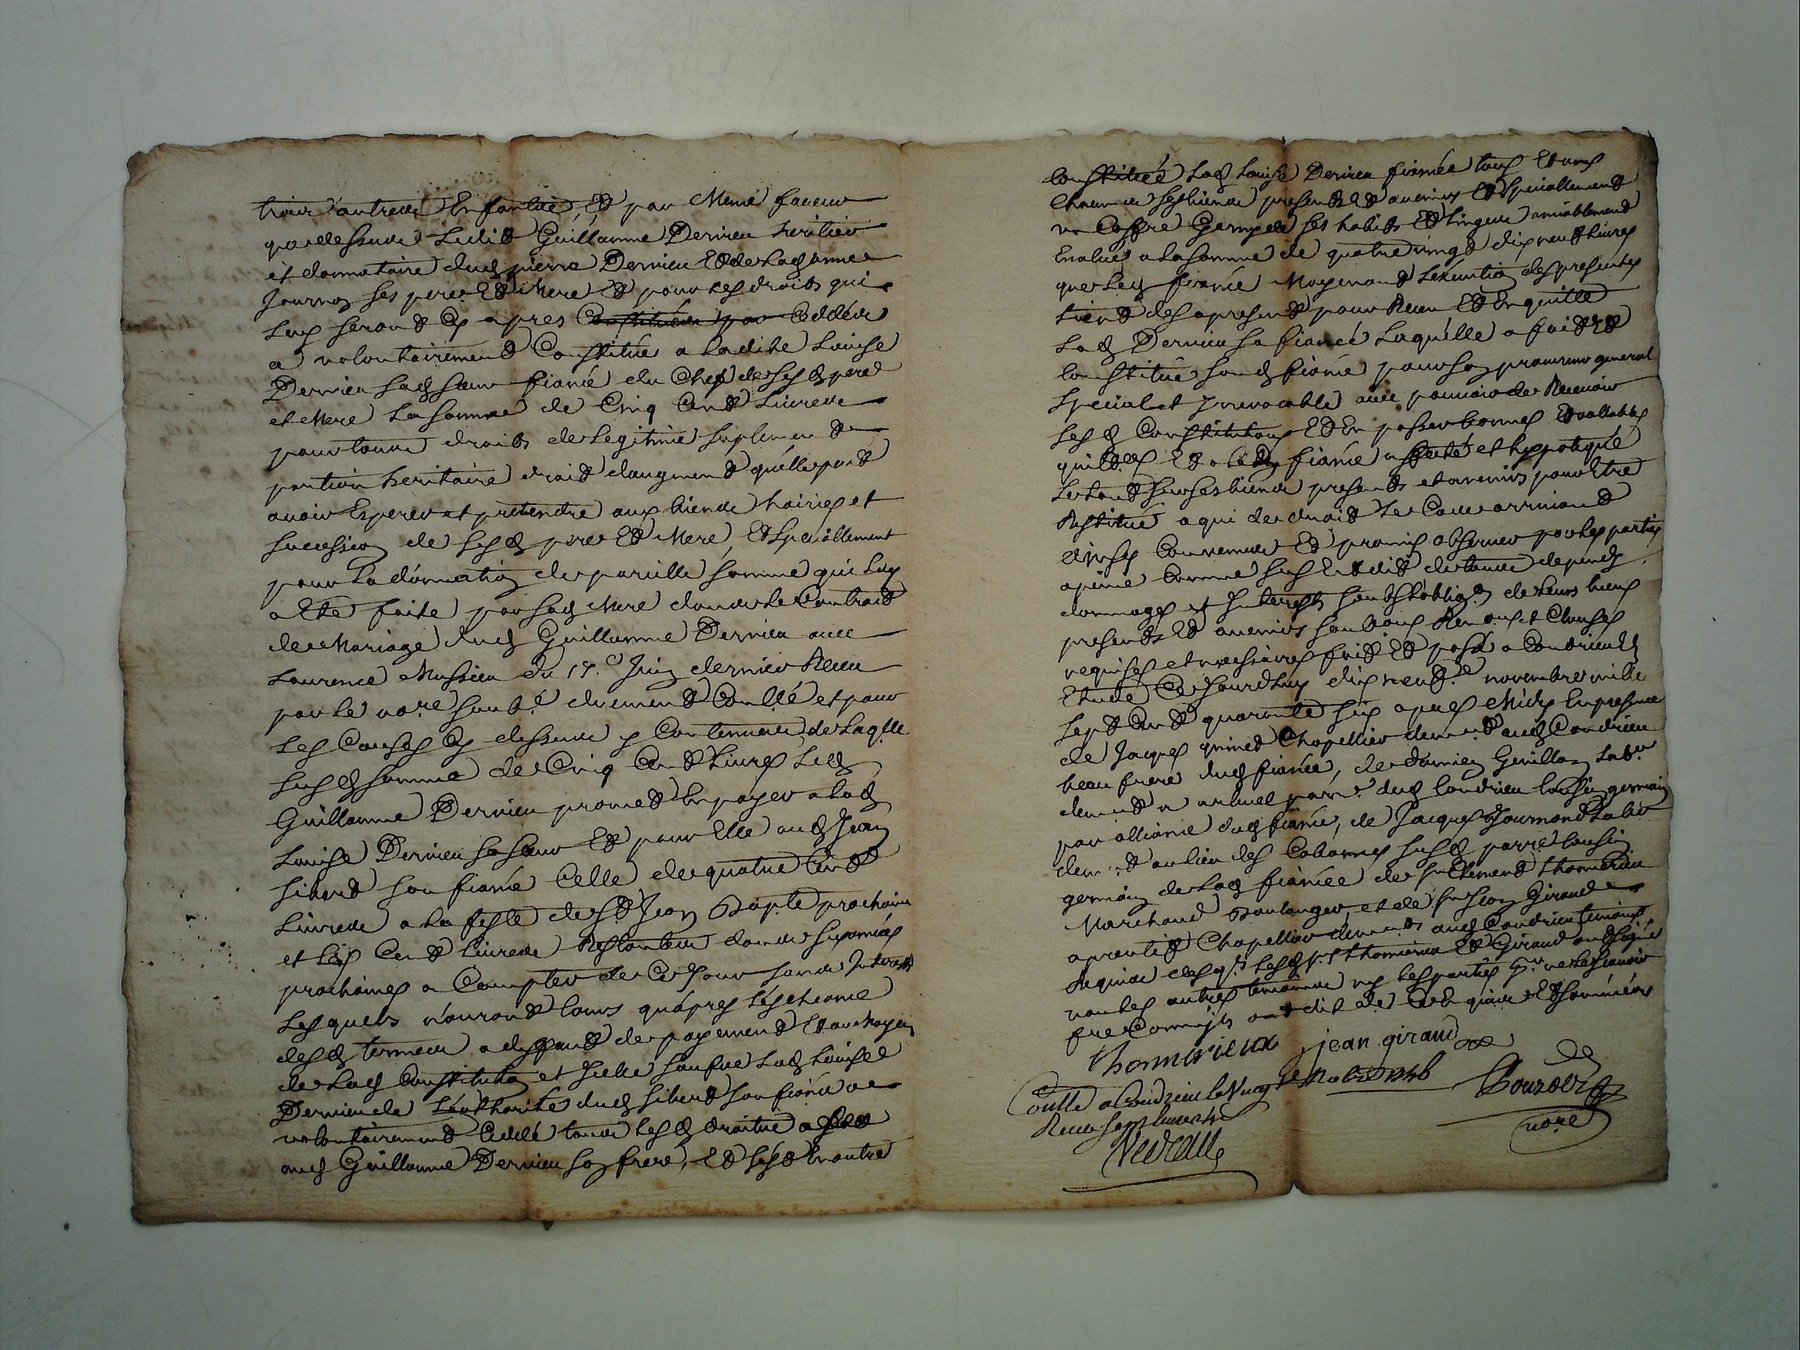 et par Meme faveur
que dessus Ledit Guillaume Dernieu heritier
et donnataire dud pierre Dernieu Et de Lad anne
Journoz ses pere Et Mere Et pour Les droits qui
Luy seront Cy apres Constitués par Ceddés
a volontairement Constitué a Ladite Louise
Dernieu sad soeur fiancé du Chef de sesd pere
et Mere La somme de Cinq Cent Livres
pour tous droits de Legitime suplement
portion hereditaire droit d'augment qu'elle peut
avoir Esperer et pretendre aux biens hoiries et
succession de sesd pere Et Mere, Et speciallement
pour La donnation de pareille somme qui Luy
a Eté faite par sad Mere dans Le Contrait
de Mariage dud Guillaume Dernieu avec
Laurence Mussieu du 17e Juin dernier Receu
par Le nore soubé duement Conllé et pour
Les Causes Cy dessus y Contenues de Laqlle
susd somme de Cinq Cent Livres Led
Guillaume Dernieu promet En payer a Lad
Louise Dernieu sa soeur Et pour Elle aud Jean
Sibert son fiancé Celle de quatre Cent
Livres a La feste de St Jean Baptte prochaine
et Les Cent Livres Restantes dans six années
prochaines a Compter de Ce Jour sans Interets
Lesquels n'auront Cours qu'apres L'escheance
desd termes a deffaut de payement Et au Moyen
de Lad Constitution et Icelle sauve Lad Louise
Dernieu de L'authorité dud Sibert son fiancé a
volontairement Ceddé tous Lesd droits
aud Guillaume Dernieu son frere, Et s'est En outre
Constitué Lad Louise Dernieu fiancée tous Et uns
Chacuns ses biens presents Et avenirs Et specialement
un Coffre Garny de ses habits Et Linges amiablement
Evalué a La somme de quatre vingt dix neuf Livres
que Led fiancé Moyenant L'execution des presentes
tient des apresent pour Receu Et En quitte
Lad Dernieu sa fiancée Laquelle a fait Et
Constitué sond fiancé pour son procureur general
special et Irrevocable avec pouvoir de Recevoir
Lesd Constitutions Et En passer bonnes Et vallables
quittces Et a Led fiancé affecté et hypotequé
Le tout sur ses biens presents et avenirs pour Etre
Restitué a qui de droit Le Cas arrivant
ainsy Convenus Et promis observer par Les parties
a peine Comme sus Est dit de tous depends
dommages et Interests soubs L'obligaon de Leurs biens
presents Et avenirs soubmis Renonct et Clauses
requises et necessaires fait Et passé a Condrieu En
Etude Ce Jourd'huy dix neufe novembre mille
sept Cent quarante six apres Midy En presence
de Jacques quinet Chapellier demt aud Condrieu
beau frere dud fiancé, de damien Gerillon Labr
demt a arbuel parr. dud Condrieu Cousin germain
par alliance dud fiancé, de Jacques Journoud Labr
demt au lieu des Cabannes susd parre Cousin
germain de Lad fiancée de sr Clement thomirieu
Marchand boulanger, et de sr Jean Giraud
aprentif Chapellier demts aud Condrieu temoins
Requis desqls Lesd srs thomirieu Et Giraud ont signé
non Les autres temoins ny Les parties pour ne Le scavoir
fre Comm'ils ont dit de Ce Enquis Et sommés
thomirieux jean giraud
Conllé a Condrieu Le vingt 9bre 1746
Receu sept Livres
Bourdin
nore